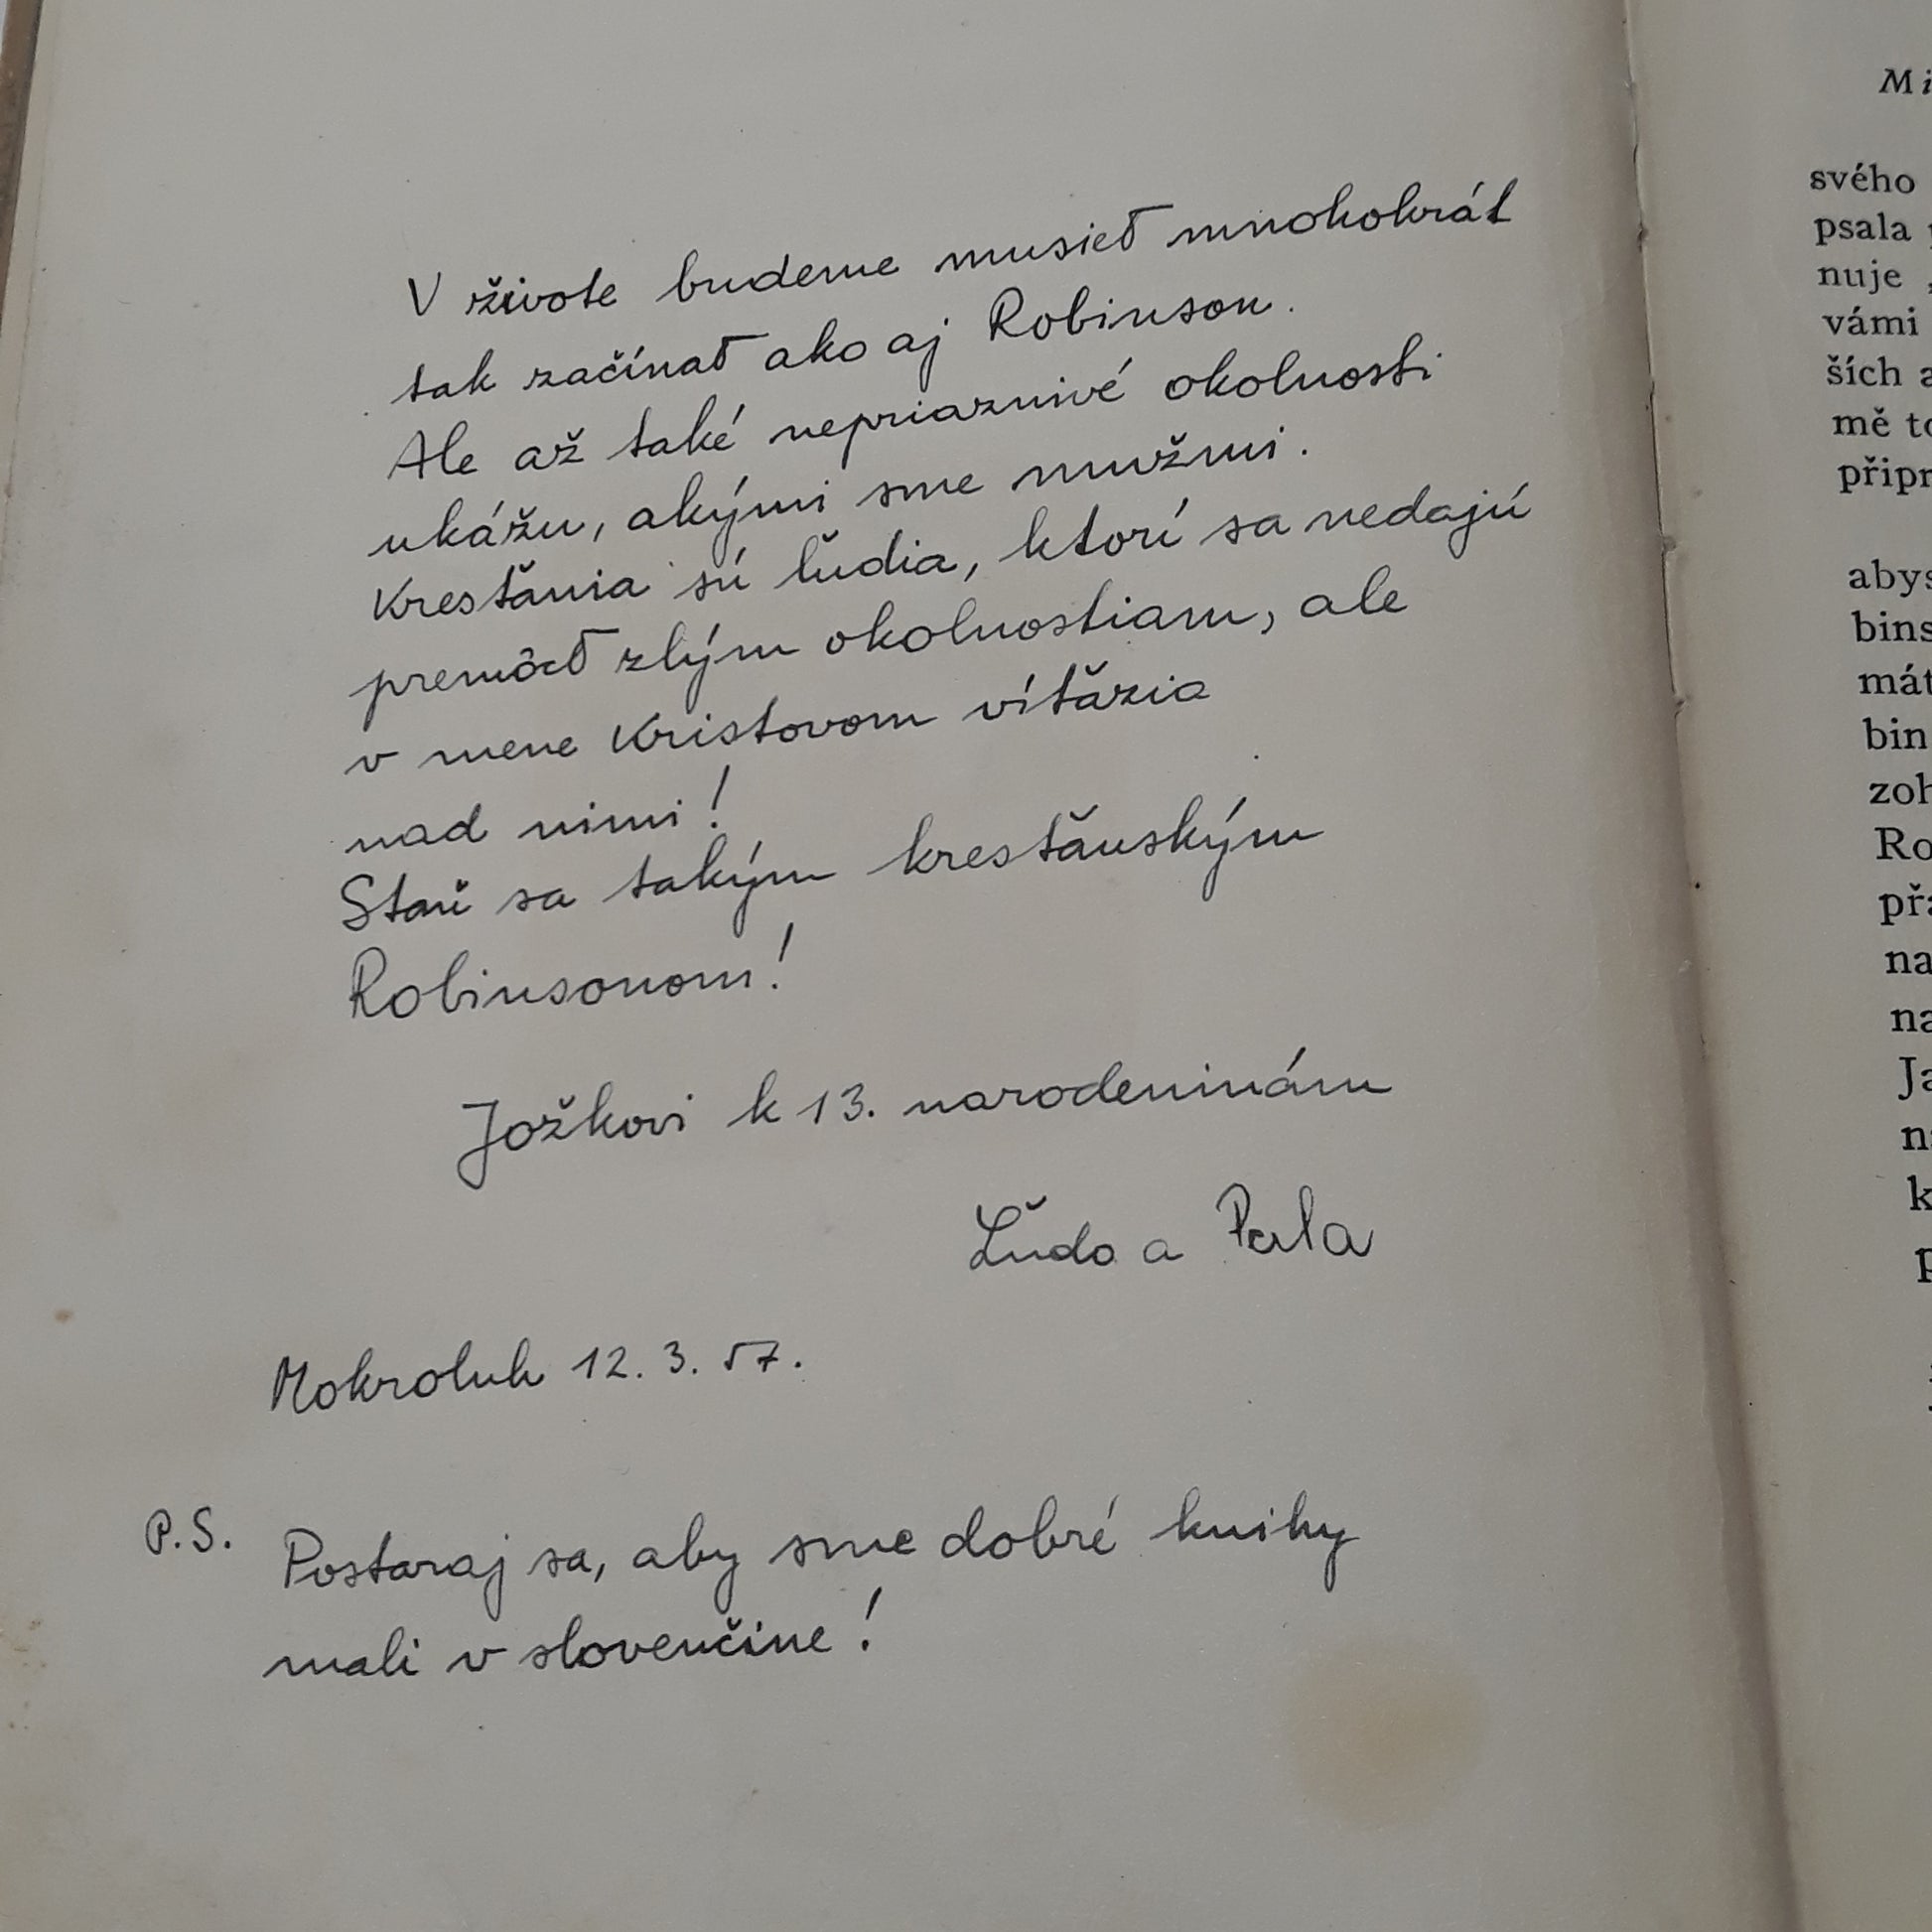 V živote budeme musieť mnohokrát
tak začínať ako aj Robinson.
Ale až také nepriaznivé okolnosti
ukážu, akými sme mužmi.
Kresťania sú ľudia, ktorí sa nedajú
premôcť zlým okolnostiam, ale
v mene Kristovom víťazia
nad nimi!
Staň sa takým kresťanským
Robinsonom!
Jožkovi k 13. narodeninám
Ľudo a Pala
Mokroluh 12. 3. 57.
P.S. Postaraj sa, aby sme dobré knihy
mali v slovenčine!
Mi
svého
psala
nuje
vámi
ších a
mě to
připr
abys
bins
mát
bin
zoh
Ro
přá
na
na
Ja
na
k
p